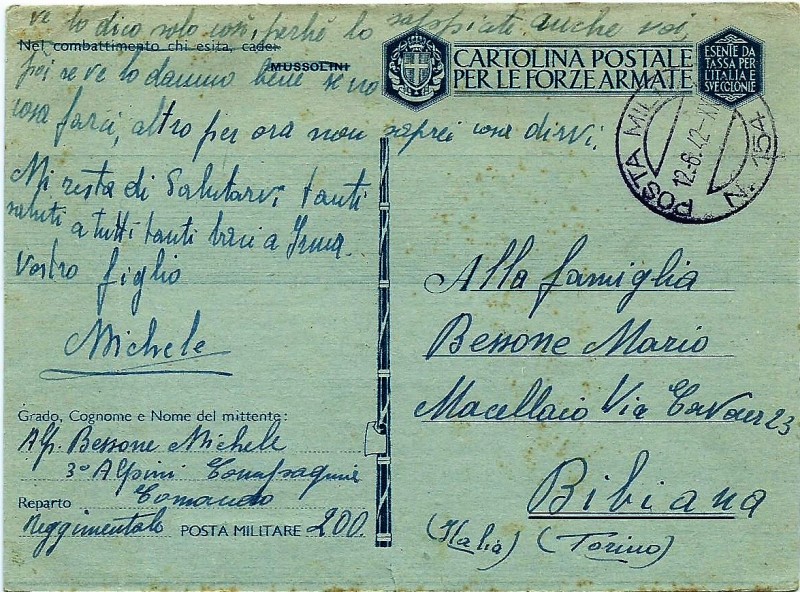 ve lo dico solo così, perché lo sappiate anche voi,
Nel combattimento chi esita, cade!
MUSSOLINI
poi se ve lo danno bene se no
cosa farci, altro per ora non saprei cosa dirvi.
Mi resta di Salutarvi tanti
saluti a tutti tanti baci a Irma
Vostro figlio
Michele
Grado, Cognome e Nome del mittente:
Alp. Bessone Michele
3° Alpini Compagnia
Comando
Reparto
Reggimentale POSTA MILITARE 200.
CARTOLINA POSTALE
PER LE FORZE ARMATE
ESENTE DA
TASSA PER
L'ITALIA E
SVE COLONIE
POSTA MIL N
12.6.42
Alla famiglia
Bessone Mario
Macellaio Via Cavour 23
Bibiana
(Italia) (Torino)